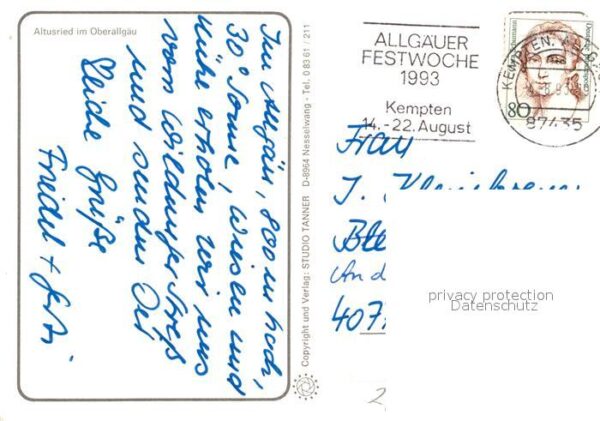 Altusried im Oberallgäu
Im Allgäu, 800 m hoch,
30° Sonne, Wiesen und
Kühe erholen wir uns
vom Düsseldorfer Streß
und senden Dir
liebe Grüße
Friedel +
Copyright und Verlag: STUDIO TANNER D-8964 Nesselwang - Tel. 0 83 61 / 211
ALLGÄUER
FESTWOCHE
1993
Kempten
14.-22. August
KEMPTEN
87435
80
Frau
J.
407
privacy protection
Datenschutz